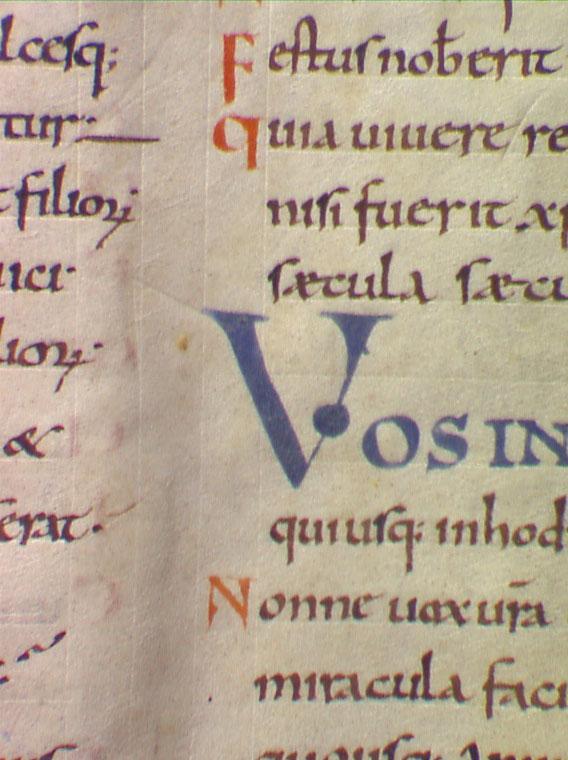 lcesq:
tur:
filioꝝ
uici·
lioꝝ·
&
erat.
Festus nob̅ erit
quia uiuere re
nisi fuerit xp
sæcula sæcu
VOS IN
quiusq: inhod
Nonne uox ur̅a
miracula faci